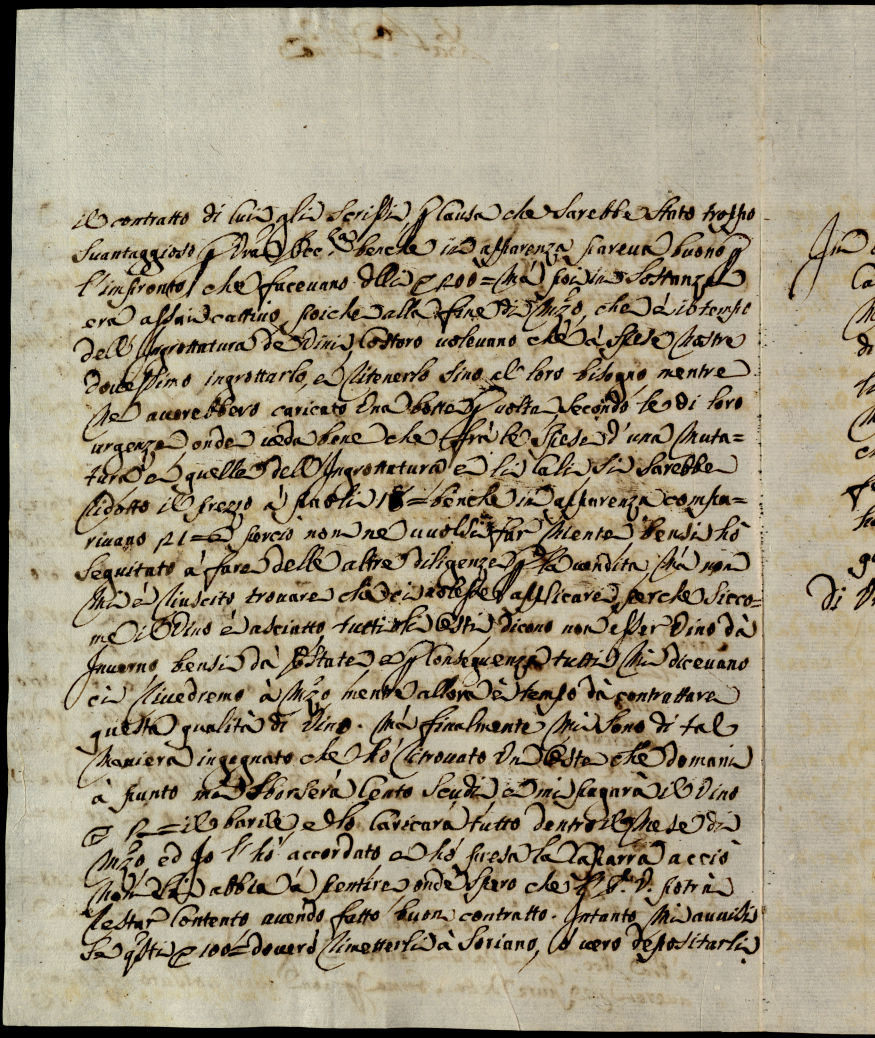 il contratto di lui gli scrissi p causa che sarebbe stato troppo
suantaggioso p Vra Ecc.za benche in apparenza pareua buono p
l'impronto che faceuano delli 200= Mà poi in sostanza
era assai cattiuo, poiche alla fine di Mzo, che è il tempo
dell'Ingrottatura de Vini Costoro uoleuano che à spese Nostre
douessimo ingrottarlo, e Ritenerlo sino al loro bisogno mentre
Ne auerebbero caricato Una botte p uolta secondo le di loro
urgenze, onde ueda bene che frà le spese d'una Muta=
tura e quelle dell'Ingrottatura e li Cali si sarebbe
Ridotto il prezzo à paoli 18= benche in apparenza compa=
riuano 21= e perciò non ne uuolsi far Niente bensi hò
seguitato à fare delle altre diligenze p la uendita Mà non
Mi è Riuscito trouare chi ci uolesse applicare perche sicco=
me il Vino è asciatto tutti li Osti dicono non esser Vino dà
Inuerno bensi dà Estate e p Conseguenza tutti Mi diceuano
ci Riuedremo à Mzo mentre allora è tempo dà contrattare
questa qualità di Vino. Mà finalmente Mi sono di tal
Maniera ingegnato che hò Ritrouato Un Oste che domani
à punto mi sborserà Cento Scudi e mi pagarà il Vino
il barile, e lo Caricarà tutto dentro il Mese di
Mzo ed Io l'hò accordato e hò presa la Caparra acciò
Non si abbia à pentire onde spero che V. potrà
Restar Contento auendo fatto buon contratto. Intanto Mi auuisi
se qsti 100= douerò Rimetterli à Soriano, ò uero depositarli
In
di